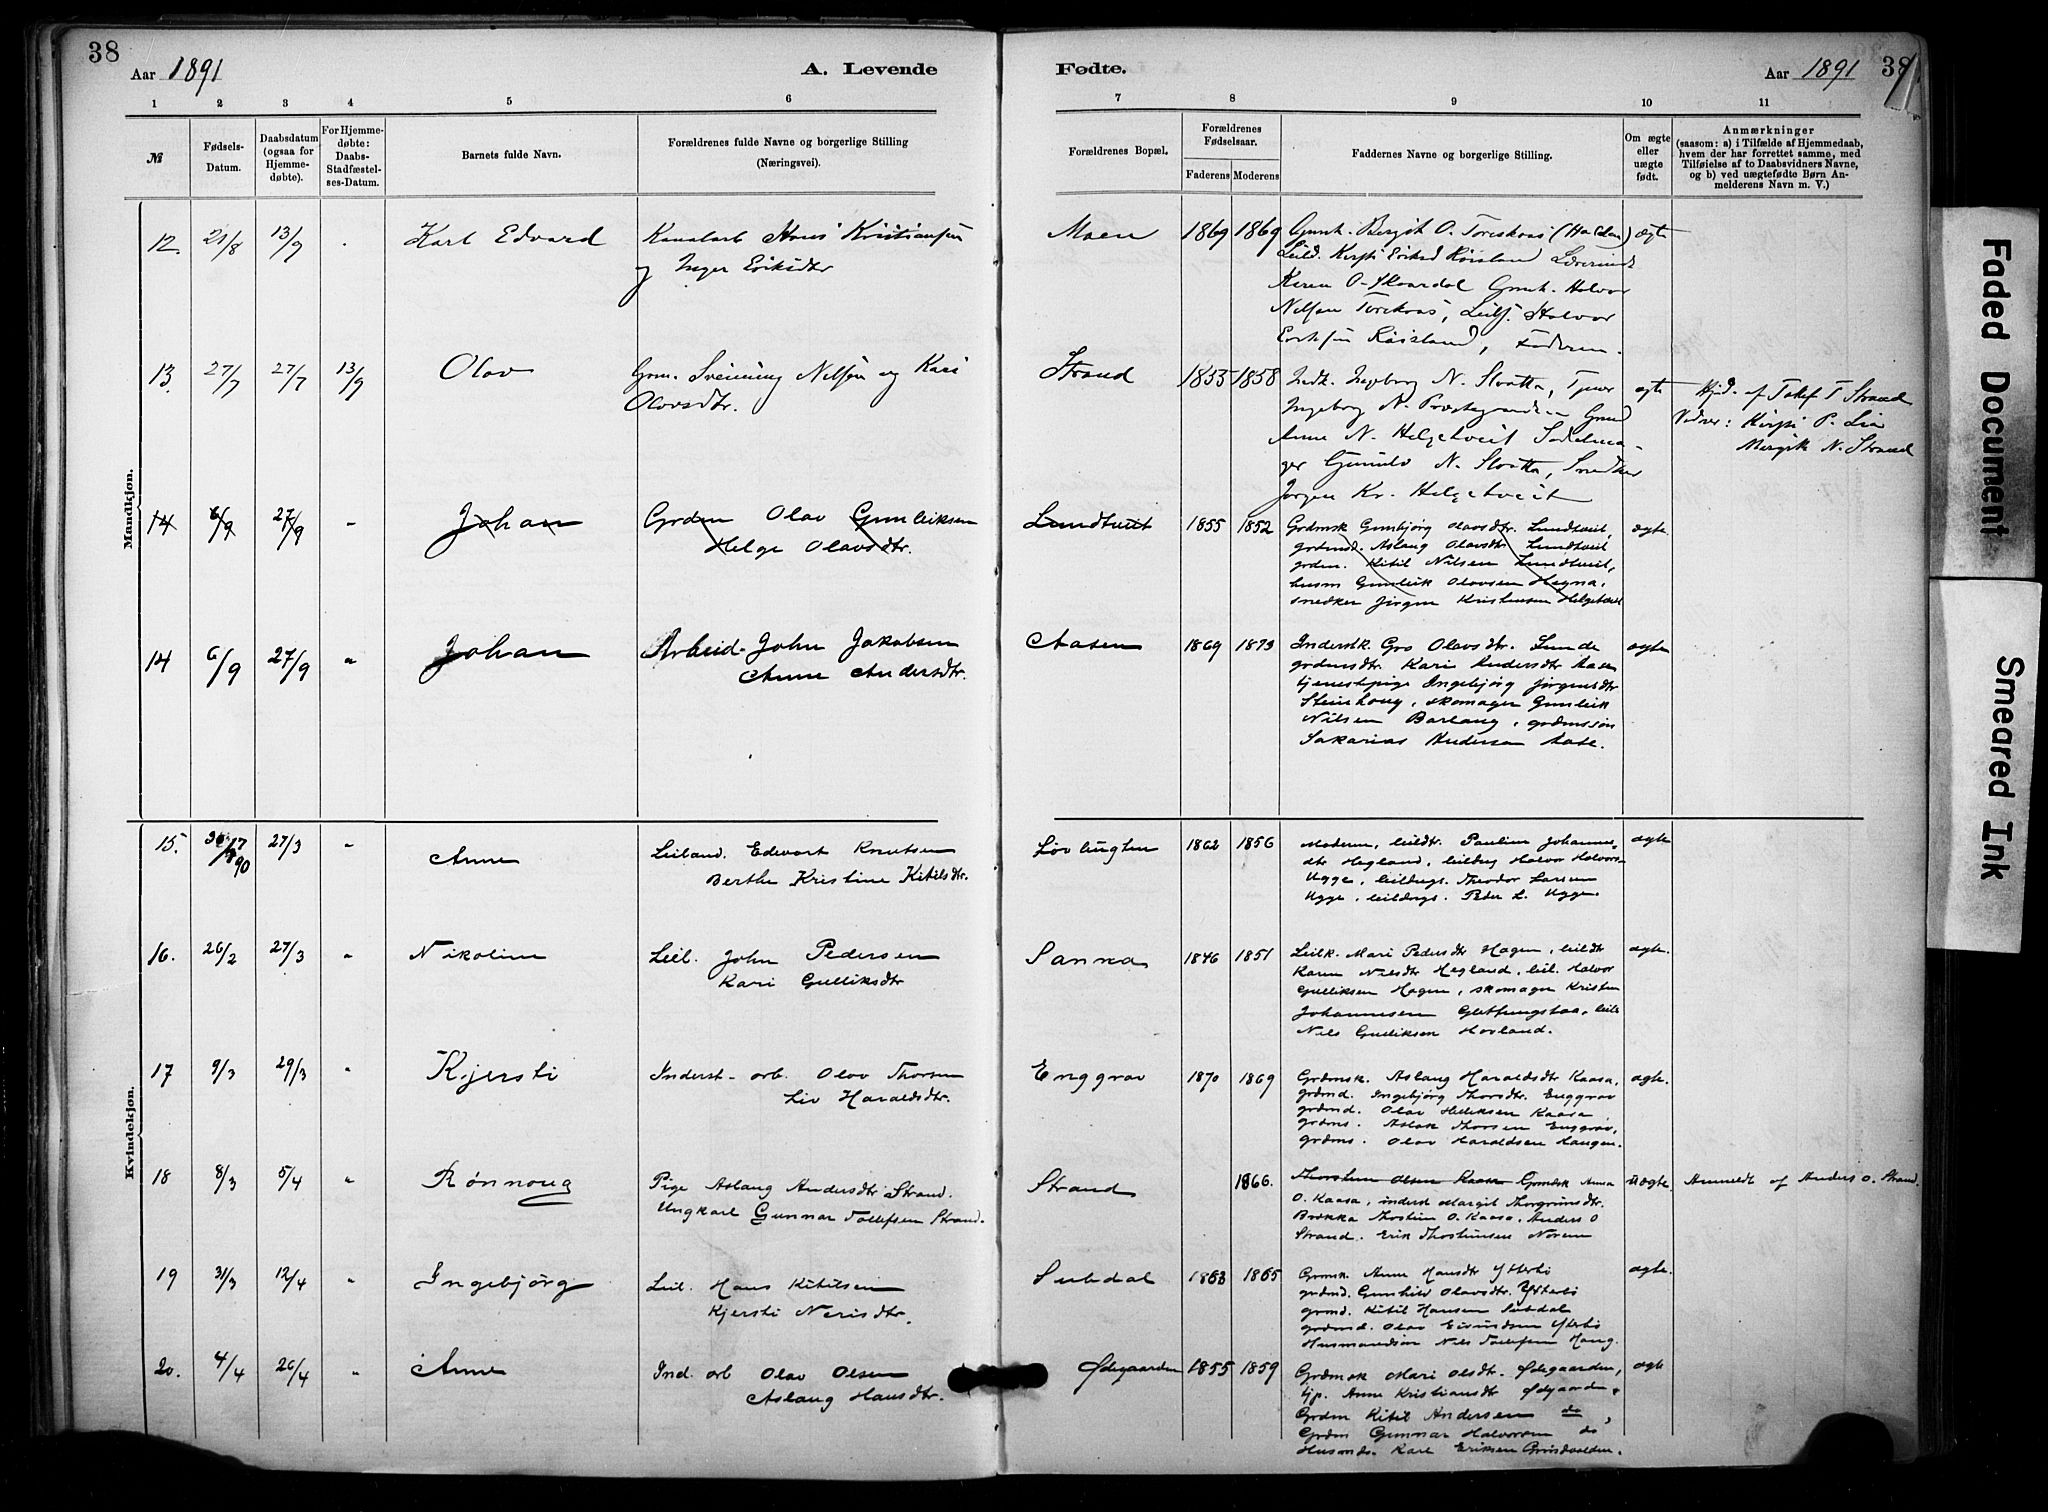 38
Aar 1891
A. Levende
Fødte.
Aar 1891
38
1 2 3 4 5 6 7 8 9 10 11
№
Fødsels-
Datum.
Daabsdatum
(ogsaa for
Hjemme-
døbte).
For Hjemme-
døbte:
Daabs-
Stadfæstel-
ses-Datum.
Barnets fulde Navn.
Forældrenes fulde Navne og borgerlige Stilling
(Næringsvei).
Forældrenes Bopæl.
Forældrenes
Fødselsaar.
Faderens Moderens
Faddernes Navne og borgerlige Stilling.
Om ægte
eller
uægte
født.
Anmærkninger
(saasom: a) i Tilfælde af Hjemmedaab,
hvem der har forrettet samme, med
Tilføielse af to Daabsvidners Navne,
og b) ved uægtefødte Børn An-
melderens Navn m. V.)
Mandkjøn.
12. 21/8 13/9 Karl Edvard
Hans Kristiansen
og Inger Eriksdtr
Moen 1869 1869
Bergit O. ægte
Kirsti
Karen O. Skaardal Gmk. Halvor
Nilsen
Halvor
Faderen.
13. 27/7 27/7 13/9 Olav
Gm. Sveinung Nilsen og Kari
Olavsdtr.
Strand 1853 1858
Ingeborg N. Slaatta, ægte
Ingeborg N.
Anne N. Helgetveit Sadelma-
ger Gunulv N. Slaatta, Snedker
Jørgen Kr. Helgetveit
Hjd. af Tolef T Strand
Vidner: Kirsti P. Lia
N. Strand
14 6/9 27/9 " Johan
Grdm Olav Gunleiksen
Helge Olavsdtr.
Lundtveit 1855 1852
Grdmsk Gunbjørg Olavsdtr. Lundtveit, ægte.
grdmsd. Aslaug Olavsdtr Lundtveit
grdm. Kitil Nilsen Lundtveit,
husm Gunleik Olavsen Hegna,
snedker Jørgen Kristensen Helgetveit
14 6/9 27/9 " Johan
Arbeid. John Jakobsen
Anne Andersdtr.
Aasen 1869 1873
Inderstk. Gro Olavsdtr. Lunde ægte
grdmsdtr Kari Andersdtr Aase
tjenestepige Ingebjørg Jørgensdtr
Steinhoug, skomager Gunleik
Nilsen Barlaug, grdmssøn
Sakarias Andersen Aase.
Kvindekjøn.
15. 27/3 " Anne
Leiland. Edevart Knutsen
Berthe Kristine Kitilsdtr.
1862 1856
Moderen, leildtr. Pauline Johannes- ægte
dtr Hegland, Halvor Halvors
Ugge, Theodor Larsen
Ugge, Peder L. Ugge.
16. 26/2 27/3 " Nikoline
Leil. John Pedersen
Kari Gulliksdtr
Sanna 1846 1851
Leilk. Mari Pedersdtr Hagen, leildtr ægte.
Karen Nilsdtr Hegland, leil. Halvor
Gulliksen Hagen, skomager Kristen
Johannesen
Nils Gulliksen Hovland.
17 9/3 29/3 " Kjersti
Inderst- arb. Olav Thorsen
Liv Haraldsdtr.
Enggrav 1870 1869
Grdmsk. Aslaug Haraldsdtr Kaasa, ægte.
grdmd. Ingebjørg Thorsdtr. Enggrav
grdmd. Olav Helleksen Kaasa,
grdms. Aslak Thorsen Enggrav,
grdms. Olav Haraldsen Haugen.
18 8/3 5/4 " Rønnoug
Pige Aslaug Andersdtr Strand.
Ungkarl Gunnar Tollefsen Strand.
Strand 1866.
Thorstein Olsen Kaasa Grdmsk Anna uægte.
O. Kaasa, inderst Margit Thorgrimsdtr.
Brokka Thostein O. Kaasa, Anders O
Strand. Erik Thosteinsen Norem
Anmeldt af Anders O. Strand.
19 31/3 12/4 " Ingebjørg
Leil. Hans Kitilsen
Kjersti Nerisdtr.
Subdal 1863 1865
Grdmsk. Anne Hansdtr Ytterbø ægte.
grdmd. Gunhild Olavsdtr. Ytterbø
grdmd. Kitil Hansen Subdal
grdmd. Olav Eivindsen Ytterbø
Husmandssøn Nils Tollefsen Haug.
20. 4/4 26/4 " Anne
Ind. arb Olav Olsen
Aslaug Hansdtr.
Ødegaarden 1855 1859
Grdmsk Mari Olsdtr. Ødegaarden, ægte
tjp. Anne Kristiansdtr Ødgaarden
Grdm Kitil Andersen do,
Grdm Gunnar Halvorsen do
Husmds. Karl Eriksen
Faded Document
Smeared Ink